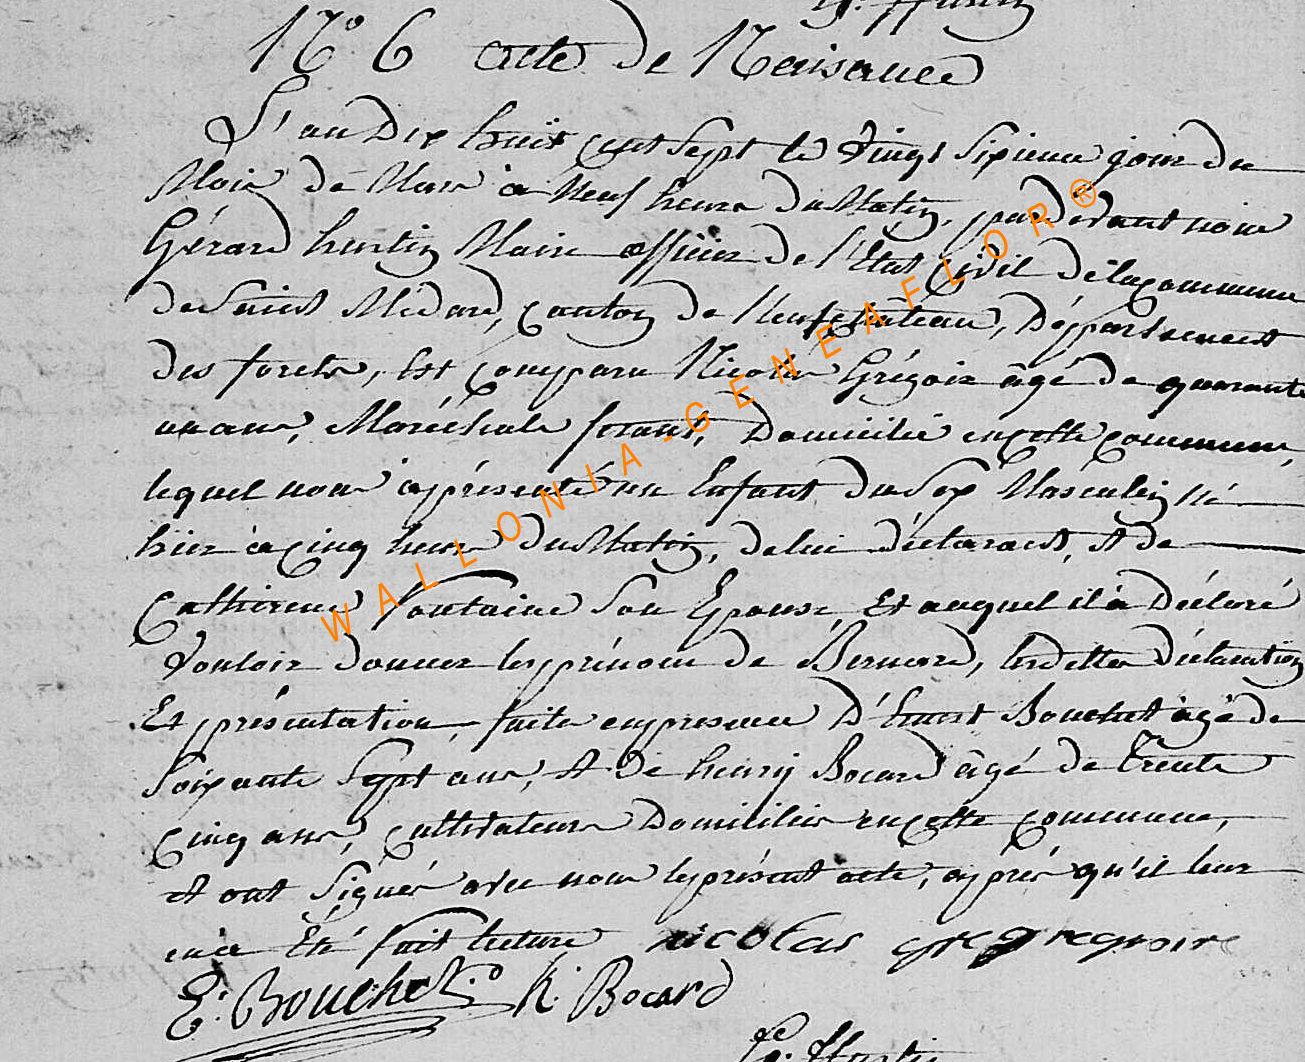 G. Hustin
N° 6 acte de Naisance
L'an dix huit cent Sept le vingt Sixieme jour du
Mois de Mars à Neuf heures du Matin, pardevant nous
Gérard hustin Maire officier de l'Etat Civil de la commune
de Saint Médard, canton de Neufchâteau, Département
des forets, Est comparu Nicolas Grégoire âgé de quarante
un ans, Maréchale ferant, Domicilié en cette commune,
lequel nous à présenté un Enfant du Sex Masculin né
hier à cinq heures du Matin, de lui déclarant, et de
Catherine fontaine Son Epouse, Et auquel il à Déclaré
Vouloir donner les prénoms de Bernard, lesdittes déclaration
Et présentation faite en presence D'Ernest Bouchet âgé de
Soixante Sept ans, et de henrij Bocard âgé de trente
cinq ans, cultivateurs Domiciliés en cette commune,
et ont Signés avec nous le présent acte, après qu'il leur
en a Eté fait lecture nicolas gregroire
E: Bouchet. h. Bocard
G. Hustin
WALLONIA-GENEAFLOR®